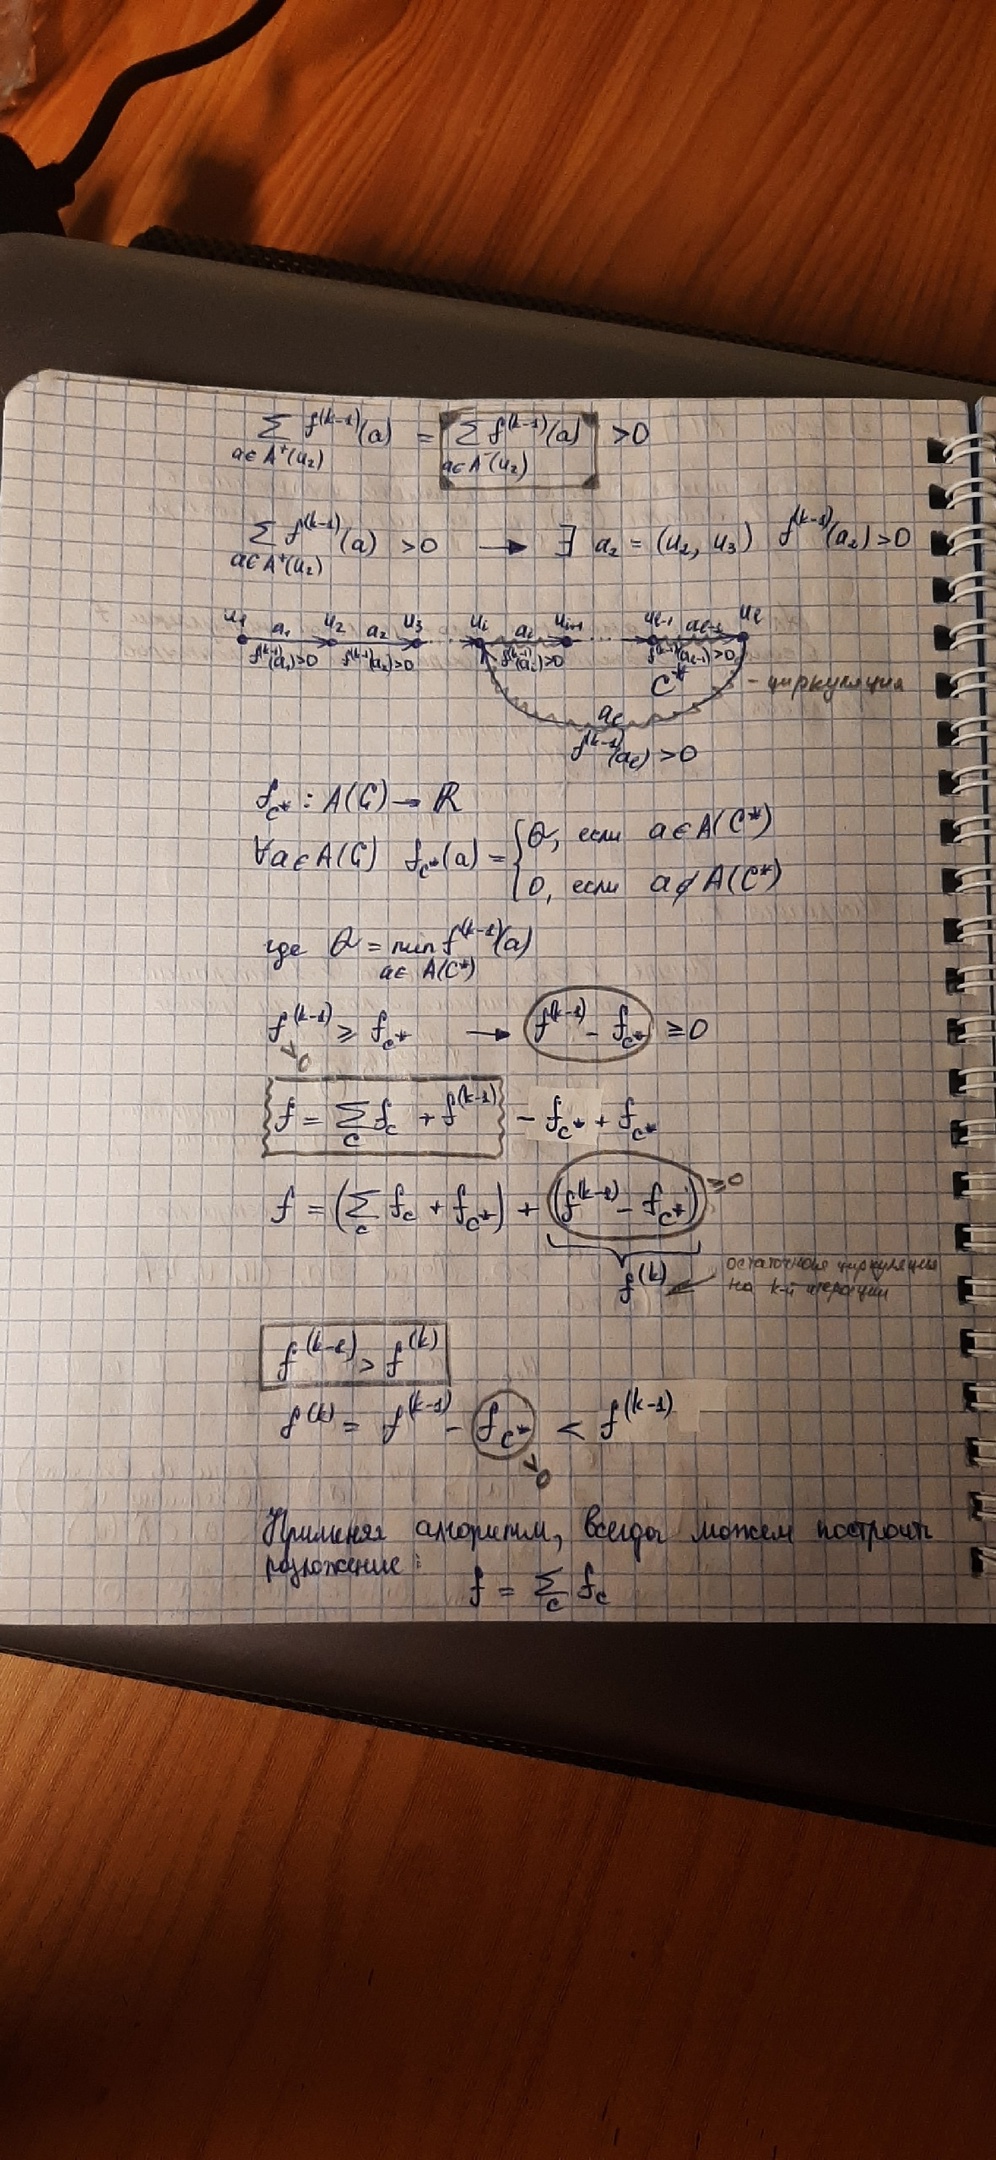 ∑ f^(k-1)(a) = ∑ f^(k-1)(a) > 0
a∈A⁺(u₂) a∈A⁻(u₂)
∑ f^(k-1)(a) > 0 → ∃ a₂ = (u₂, u₃) f^(k-1)(a₂) > 0
a∈A⁺(u₂)
u₁ a₁ u₂ a₂ u₃ ... u_i a_i u_{i+1} ... u_{ℓ-1} a_{ℓ-1} u_ℓ
f^(k-1)(a₁)>0 f^(k-1)(a₂)>0 f^(k-1)(a_i)>0 f^(k-1)(a_{ℓ-1})>0
C* - циркуляция
a_ℓ
f^(k-1)(a_ℓ) > 0
f_{C*} : A(G) → ℝ
∀a∈A(G) f_{C*}(a) = { Θ, если a∈A(C*)
0, если a∉A(C*)
где Θ = min f^(k-1)(a)
a∈A(C*)
f^(k-1) ≥ f_{C*} → f^(k-1) - f_{C*} ≥ 0
>0
f = ∑_C f_C + f^(k-1) - f_{C*} + f_{C*}
f = (∑_C f_C + f_{C*}) + (f^(k-1) - f_{C*}) ≥0
f^(k) остаточная циркуляция
на k-й итерации
f^(k-1) > f^(k)
f^(k) = f^(k-1) - f_{C*} < f^(k-1)
>0
Применяя алгоритм, всегда можем построить
разложение:
f = ∑_C f_C